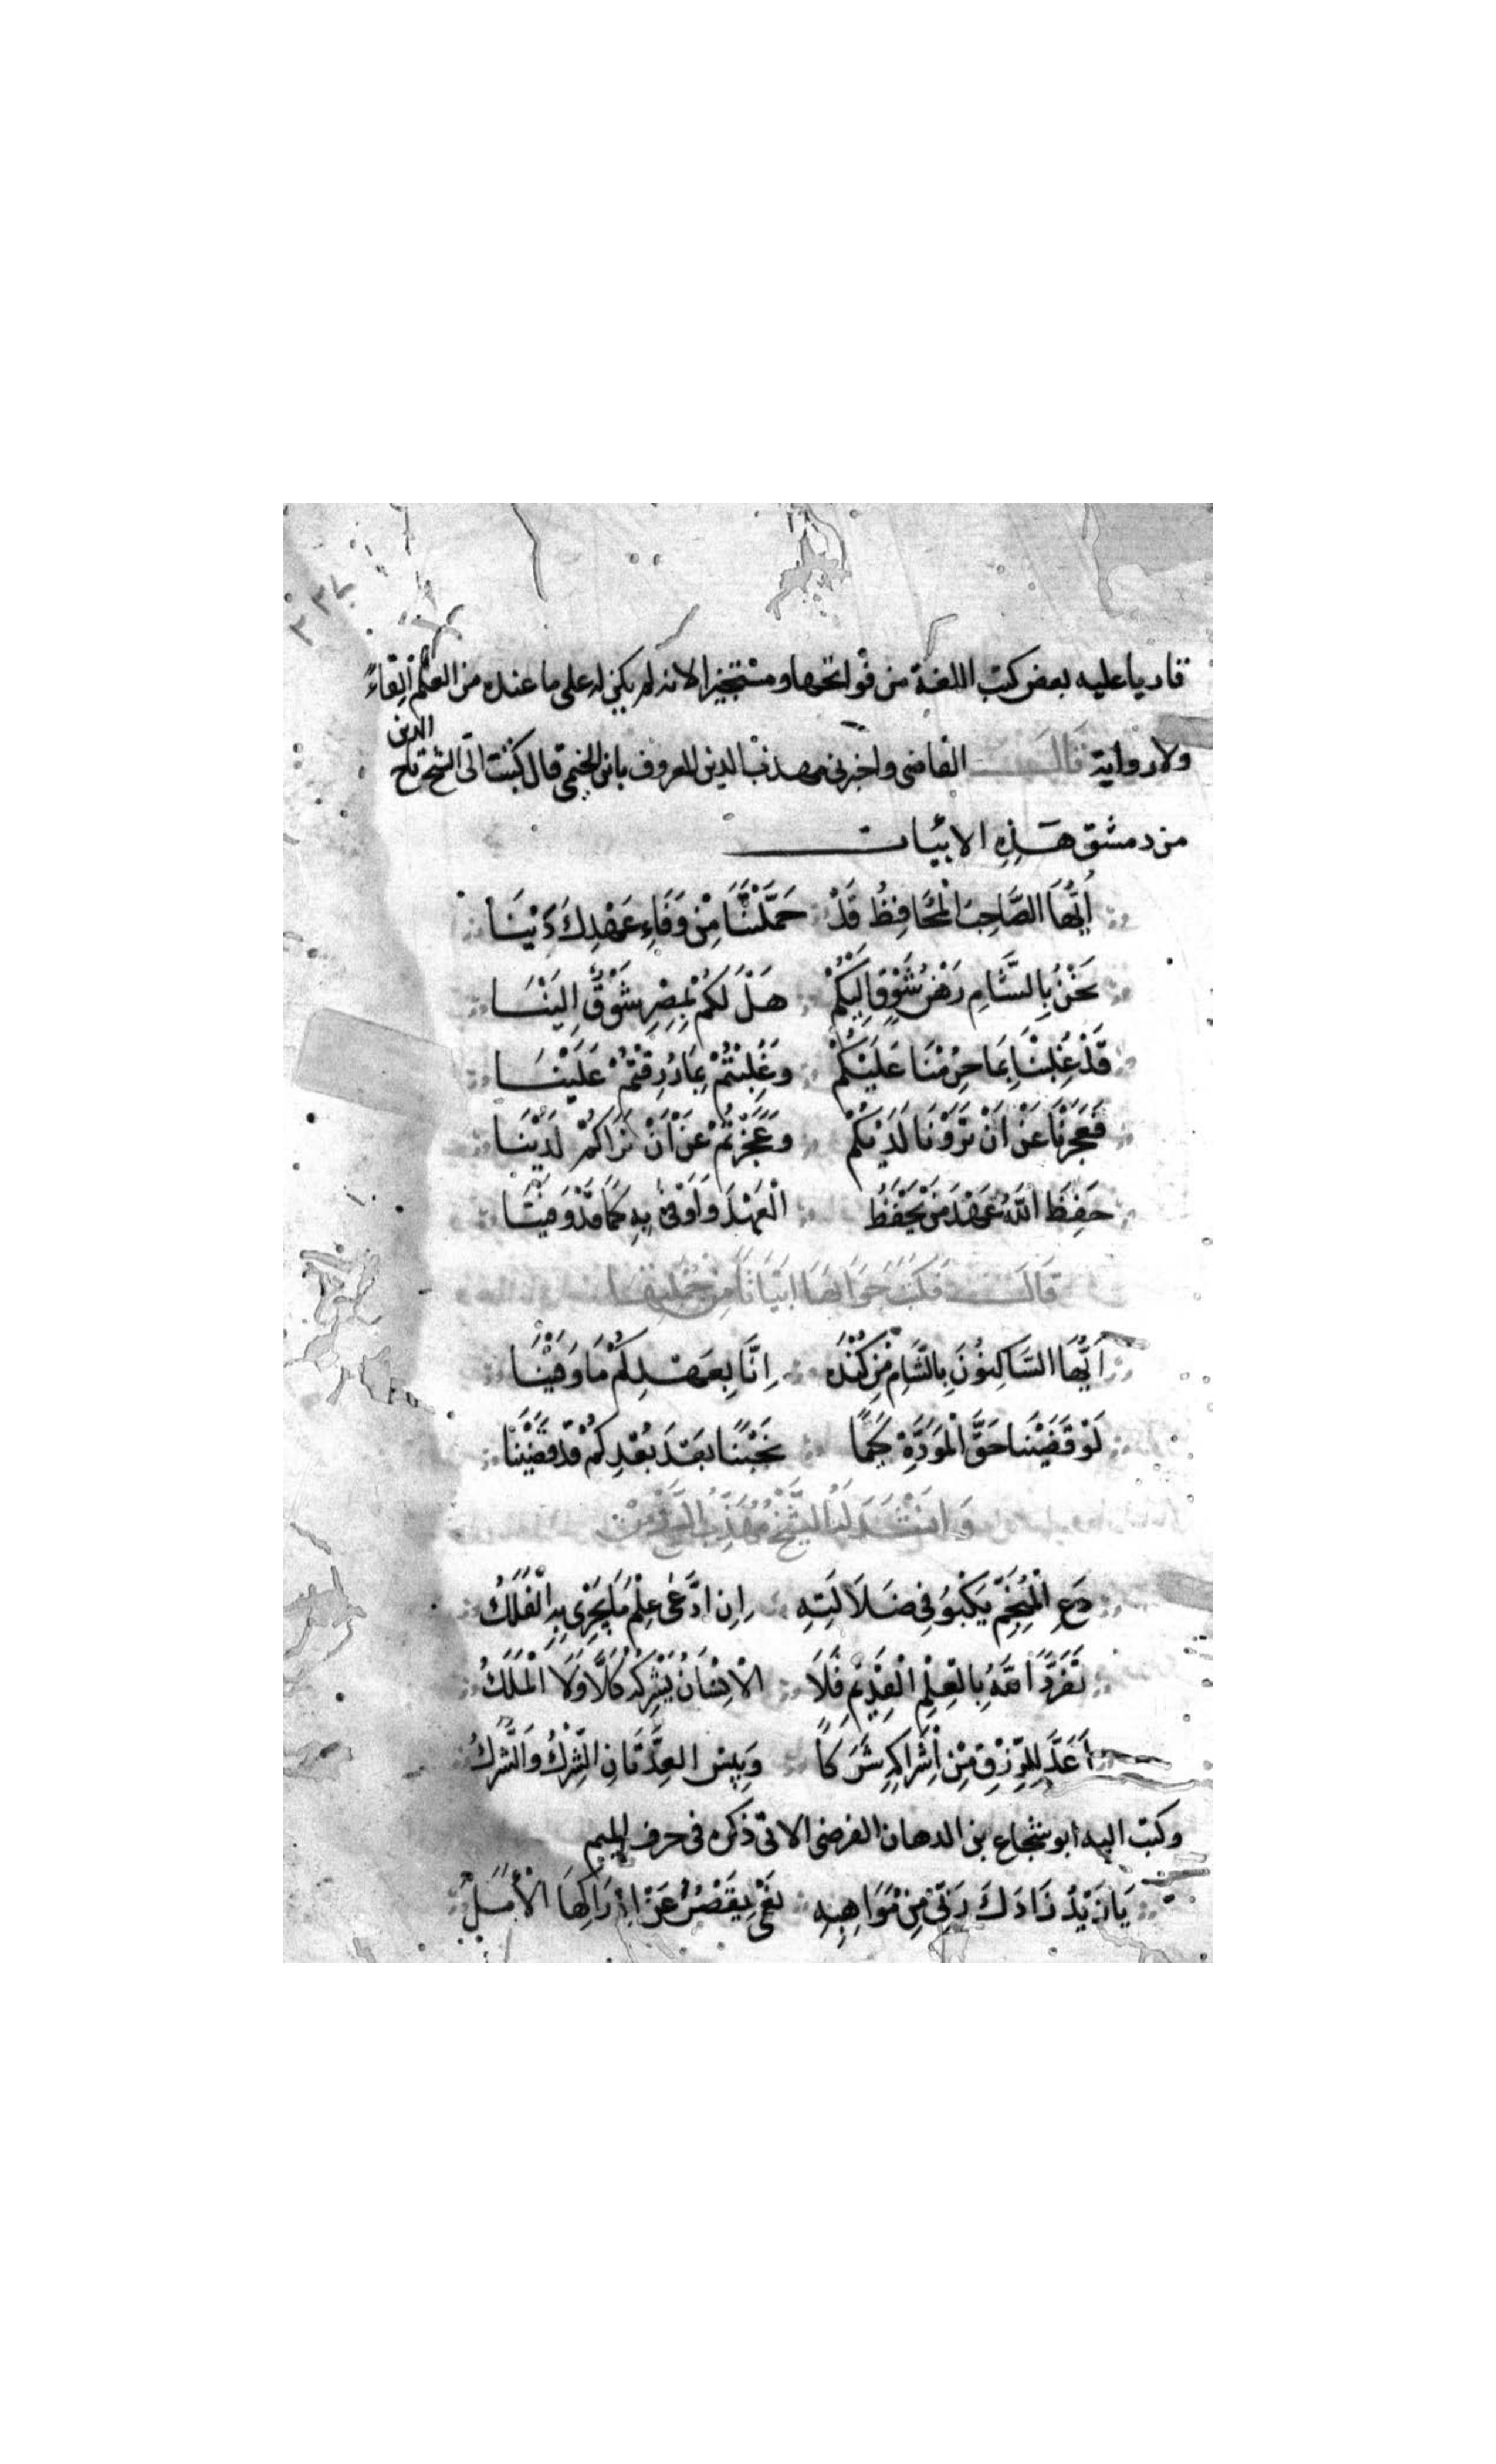 ٢٣٧
قاريا عليه بعض كتب اللغة من فواتحها ومستجيزا لانه لم يكن له على ما عنده من العلم ابقاءً
ولا رواية قال القاضي واخبرني مهذب الدين المعروف بابن الخيمي قال كتبت الى الشيخ تاج الدين
من دمشق هَذِهِ الابْيات
اَيُّهَا الصَّاحِبُ الْمُحَافِظُ قَدْ حَمَّلْتَنَا مِنْ وَفَاءِ عَهْدِكَ دَيْنَا
نَحْنُ بِالشَّامِ رَهْنُ شَوْقٍ اِلَيْكُمْ هَلْ لَكُمْ بِمِصْرِ شَوْقٌ اِلَيْنَا
قَدْ غُلِبْنَا بِمَا حُرِمْنَا عَلَيْكُمْ وَغُلِبْتُمْ بِمَا رُزِقْتُمْ عَلَيْنَا
فَعَجَزْنَا عَنْ اَنْ تَرَوْنَا لَدَيْكُمْ وَعَجَزْتُمْ عَنْ اَنْ نَرَاكُمْ لَدَيْنَا
حَفِظَ اللّهُ عَهْدَ مَنْ يَحْفَظُ الْعَهْدَ وَاَوْفَى بِهِ كَمَا قَدْ وَفَيْنَا
قَالَ فَكَتَبَ جَوَابَهَا اَبْيَاتًا مِنْ جُمْلَتِهَا
اَيُّهَا السَّاكِنُونَ بِالشَّامِ مِنْ كِنْدَه اِنَّا بِعَهْدِكُمْ مَا وَفَيْنَا
لَوْ قَضَيْنَا حَقَّ الْمَوَدَّةِ كُنَّا نَحْبَنَا بَعْدَ بُعْدِكُمْ قَدْ قَضَيْنَا
وَانْشَدَ لَهُ الشَّيْخُ مُهَذَّبُ الدِّيْنِ
دَعِ الْمُنَجِّمَ يَكْبُوْ فِي ضَلَالَتِهِ اِنِ ادَّعَى عِلْمَ مَا يَجْرِي بِهِ الْفَلَكُ
تَفَرَّدَ اللّهُ بِالْعِلْمِ الْقَدِيْمِ فَلَا الْاِنْسَانُ يُشْرِكُهُ كَلَّا وَلَا الْمَلَكُ
اَعَدَّ لِلرِّزْقِ مِنْ اِشْرَاكِهِ شَرَكًا وَبِئْسَ العِدَّتَانِ الشِّرْكُ وَالشَّرَكُ
وكتب اليه ابو شجاع بن الدهان الفرضي الاتي ذكره في حرف الميم
يَا زَيْدُ زَادَكَ رَبّي مِنْ مَوَاهِبِهِ نُعْمَى يَقْصُرُ عَنْ اِدْرَاكِهَا الْاَمَلُ